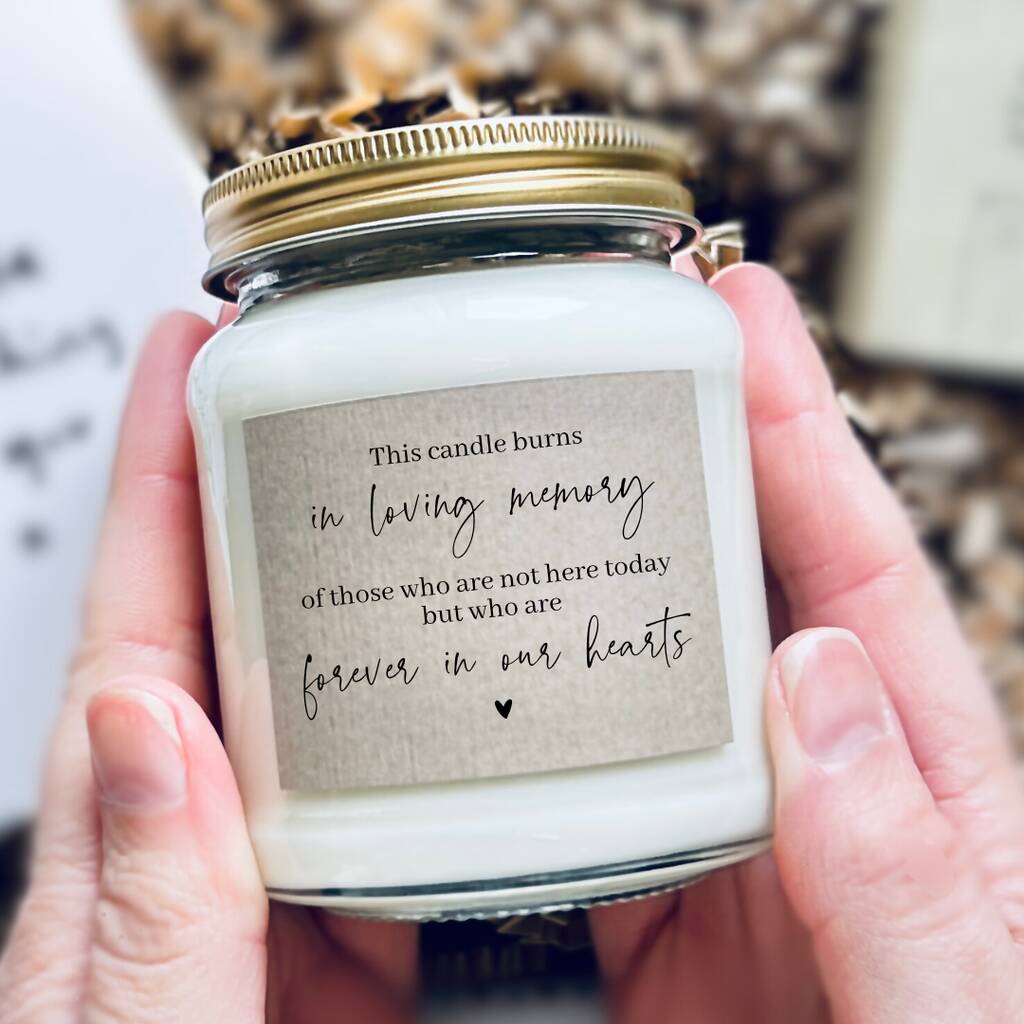 This candle burns
in loving memory
of those who are not here today
but who are
forever in our hearts